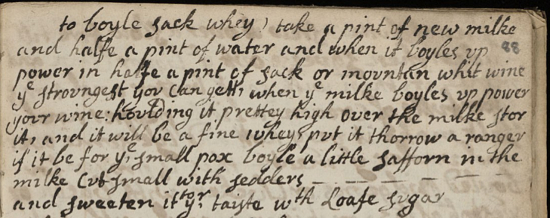 to boyle sack whey) take a pint of new milke
and halfe a pint of water and when it boyles vp 88
power in halfe a pint of sack or movntan whit wine
ye strovngest yov can gett, when ye milke boyles vp power
yovr wine: hovlding it prettey high over the milke stor
it, and it will be a fine whey, pvt it thorrow a ranger
if it be for ye small pox boyle a little safforn in the
milke Cvt small with sedders
and sweeten it to yr taiste wth Loafe svgar